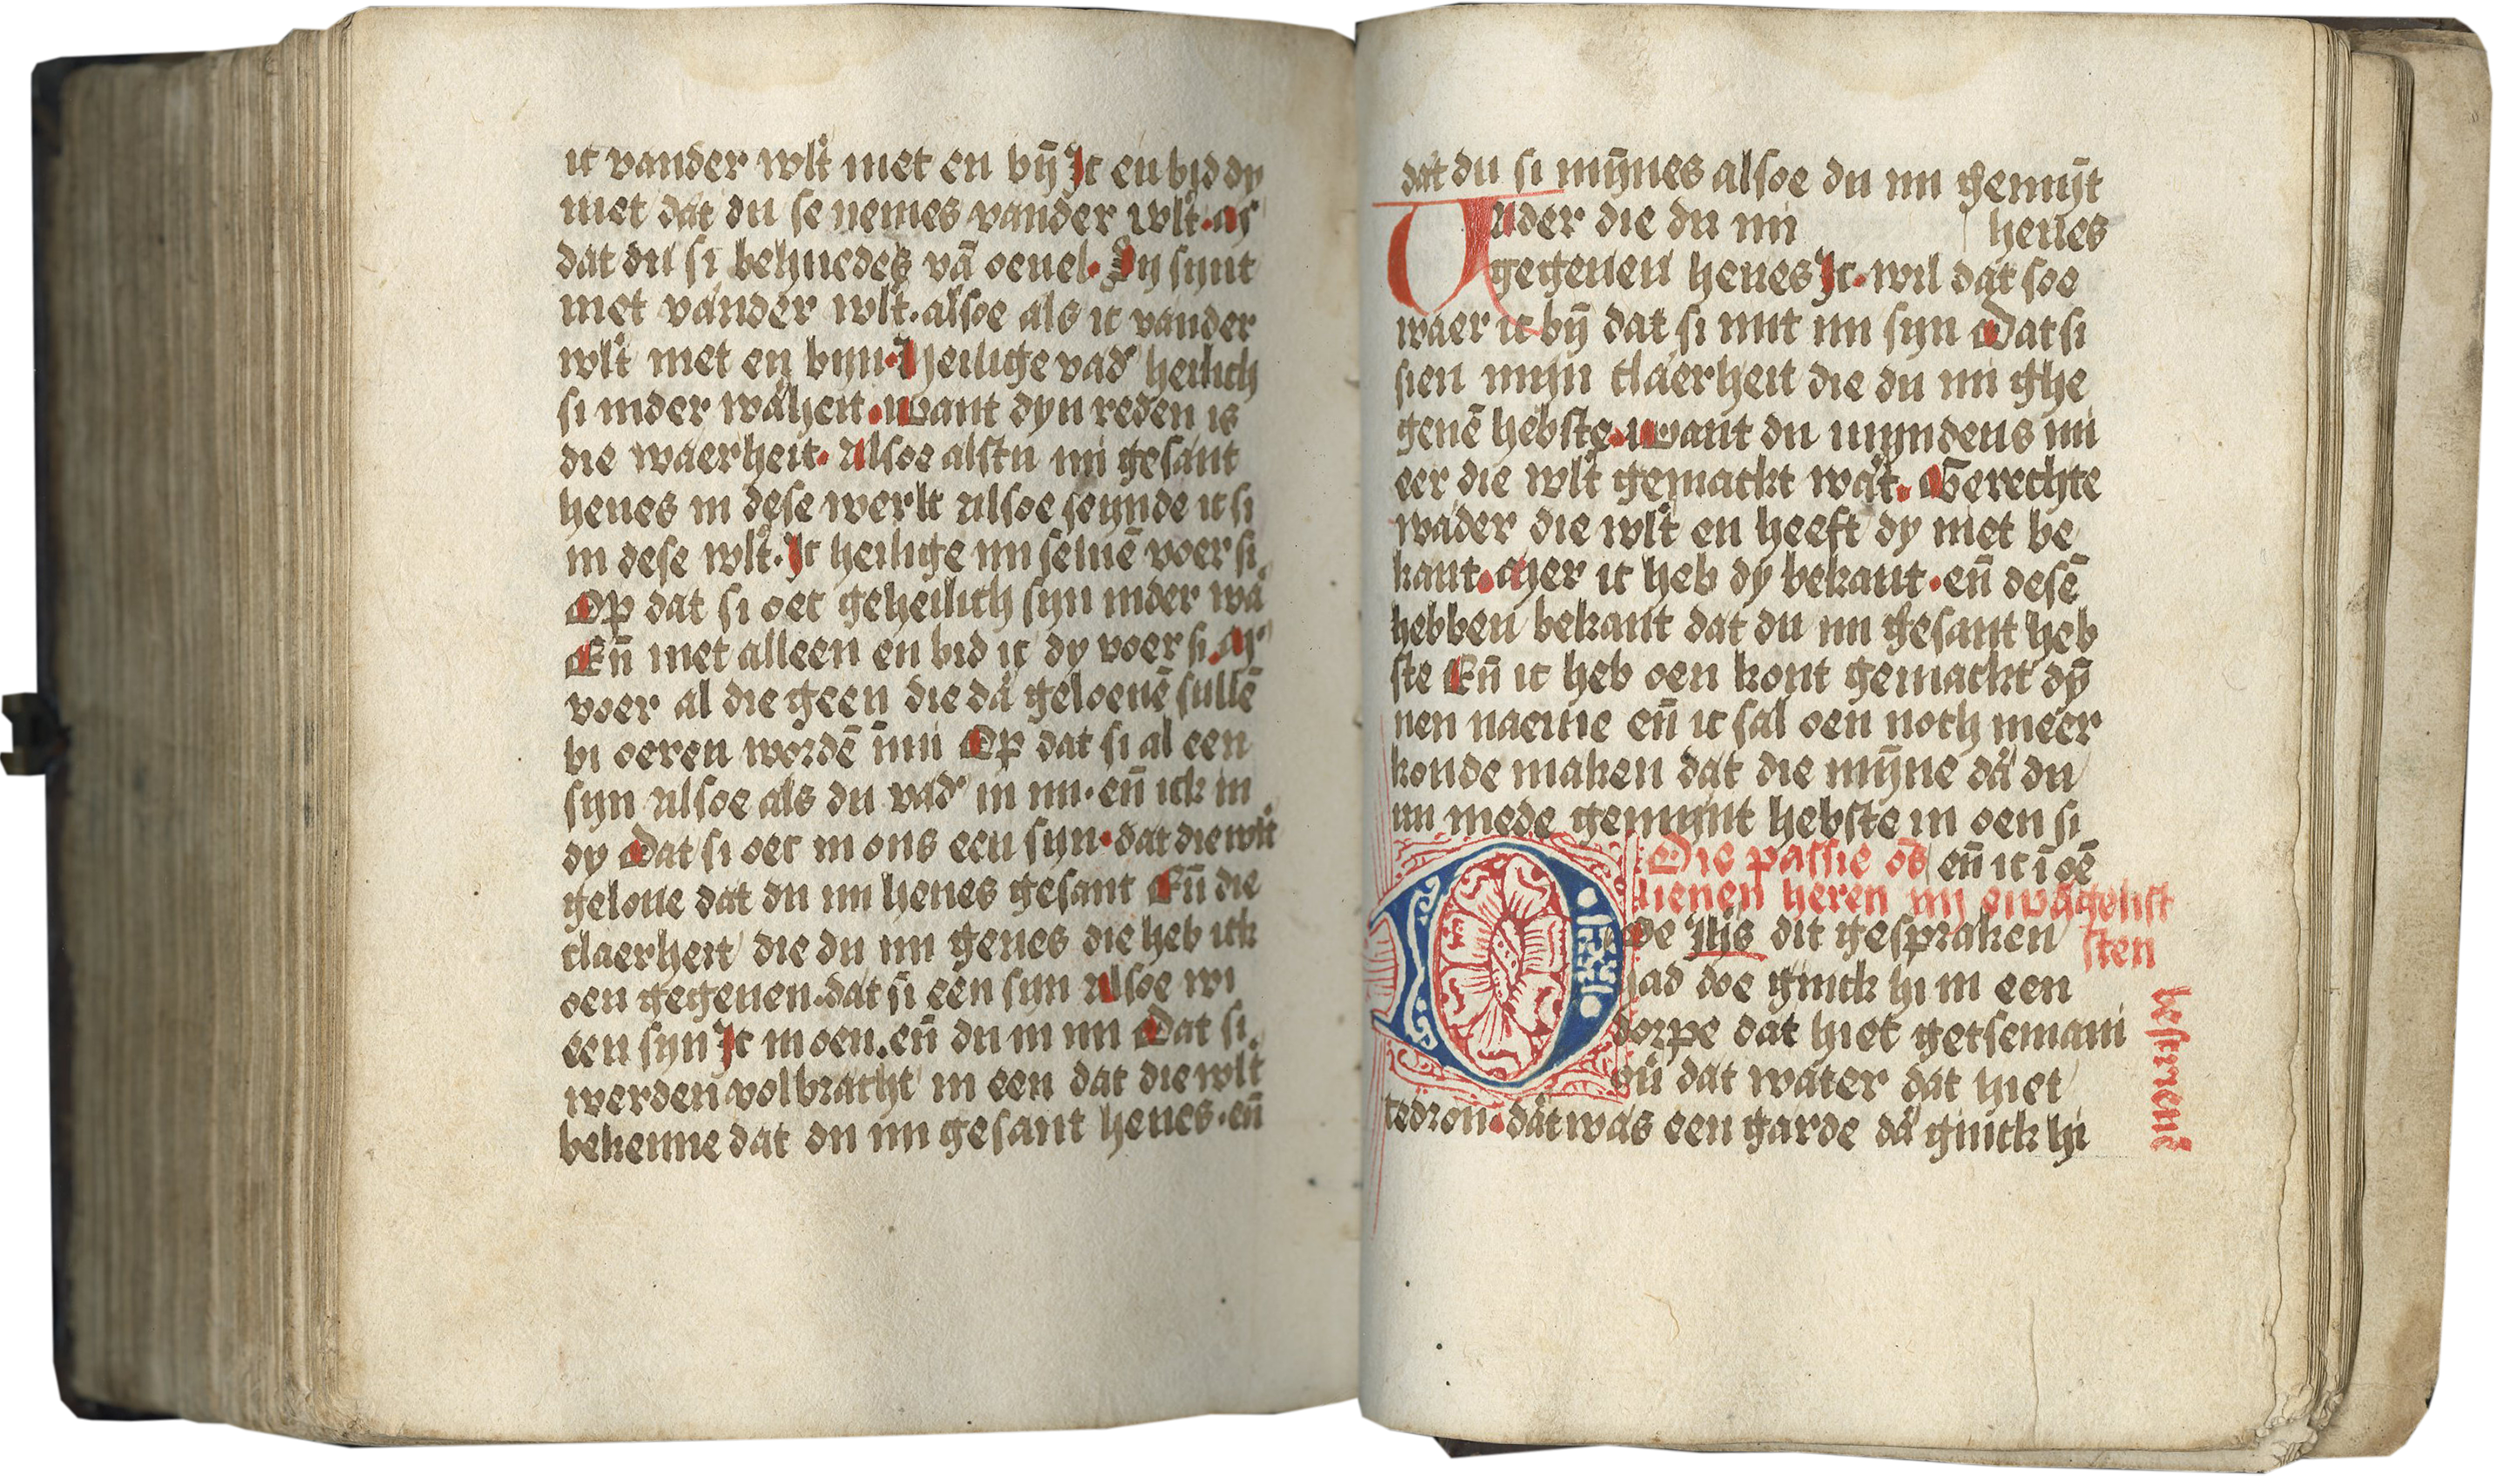 ic vander wlt niet en bȳ Ic en bid dy
niet dat du se nemes vander wlt. Mer
dat du si behuedes vā oeuel. Sy synt
niet vander wlt. alsoe als ic vander
wlt niet en byn. Heilige vad' heilich
si inder wāheit. want dyn reden is
die waerheit. Alsoe alstu mi gesant
heues in dese werlt Alsoe seynde ic si
in dese wlt. Ic heilige mi seluē voer si.
Op dat si oec geheilich syn inder wā
Eñ niet alleen en bid ic dy voer si. Mer
voer al die geen die dā geloeuē sullē
bi oeren wordē in mi Op dat si al een
syn Alsoe als du vad' in mi. eñ ick in
dy Dat si oec in ons een syn. dat die wlt
geloue dat du mi heues gesant Eñ die
claerheit die du mi geues die heb ick
oen gegeuen. dat si een syn Alsoe wi
een syn Ic in oen. eñ du in mi Dat si.
werden volbracht in een dat die wlt
bekenne dat du mi gesant heues. eñ
dat du si mȳnes alsoe du mi gemȳt
Vader die du mi heues
gegeuen heues Ic. wil dat soe
waer ic bȳ dat si mit mi syn Dat si
sien mijn claerheit die du mi ghe
geuē hebste. want du myndens mi
eer die wlt gemackt wa't. Gerechte
vvader die wlt en heeft dy niet be
kant. Mer ic heb dy bekant. eñ desē
hebben bekant dat du mi gesant heb
ste Eñ ic heb oen kont gemackt dȳ
nen naeme eñ ic sal oen noch meer
konde maken dat die mȳne dā du
mi mede gemynt hebste in oen si
Die passie os̄ eñ ic ī oē
lieuen heren iiij ewāgelist
Doe Ihs dit gespraken sten
had doe ginck hi in een
dorpe dat hiet getsemani
ou' dat water dat hiet
cedron. dat was een garde dā ginck hi
bescriuenē